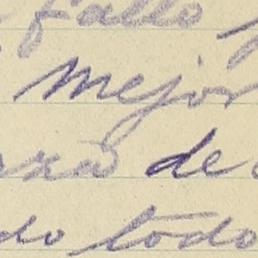 fallo
mejor
de
do todo